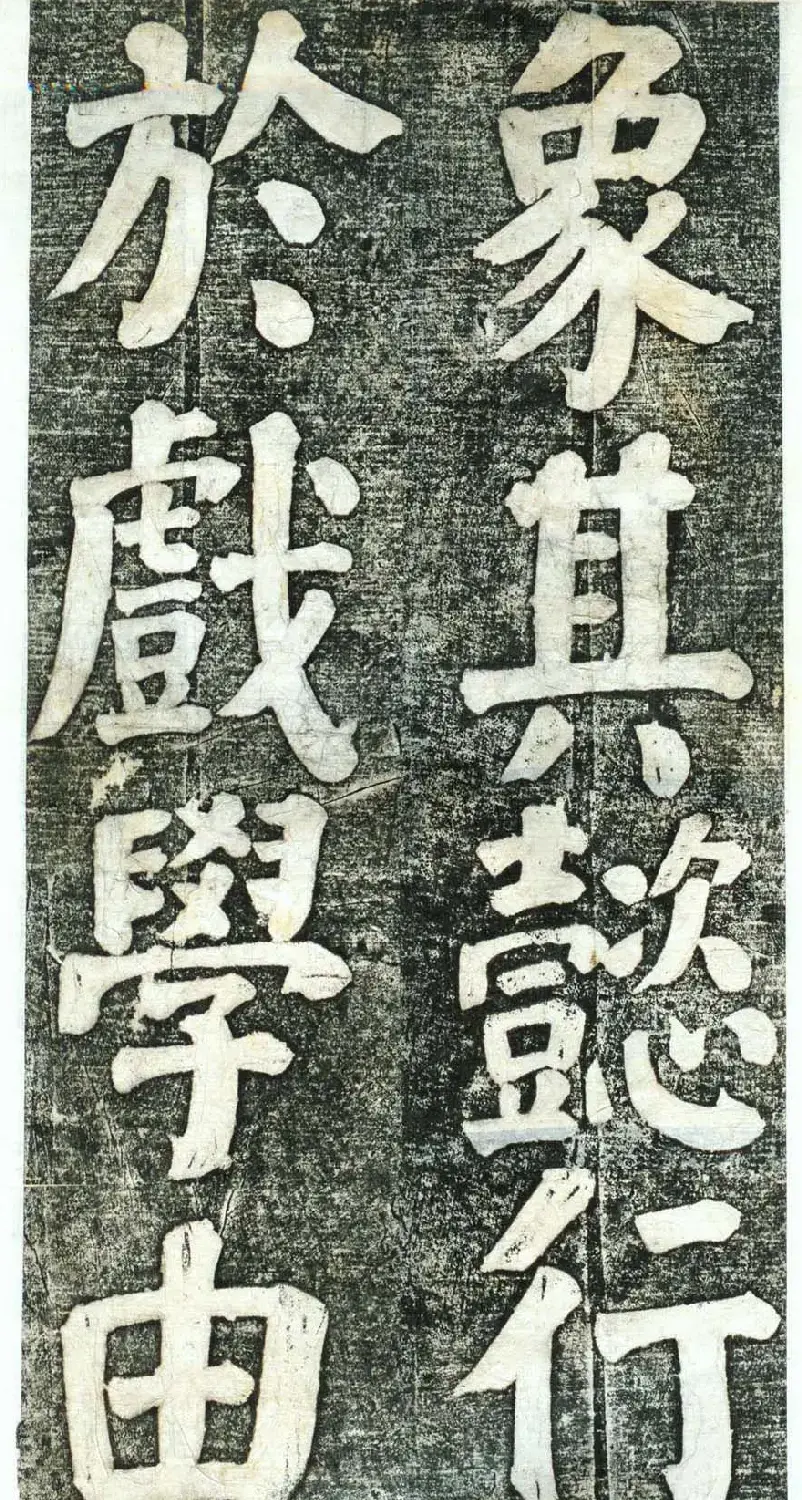 象其懿行
於戲學由